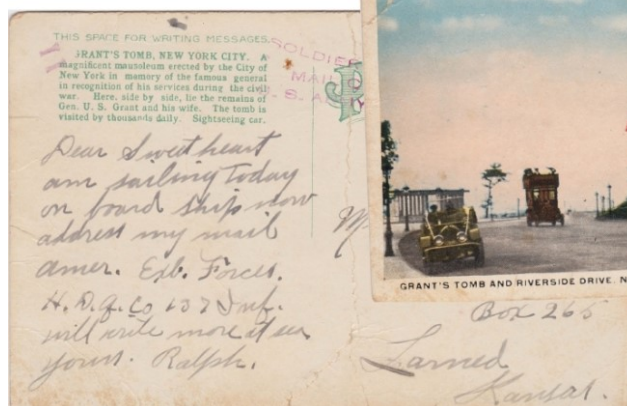 THIS SPACE FOR WRITING MESSAGES.
GRANT'S TOMB, NEW YORK CITY. A
magnificent mausoleum erected by the City of
New York in memory of the famous general
in recognition of his services during the civil
war. Here, side by side, lie the remains of
Gen. U. S. Grant and his wife. The tomb is
visited by thousands daily. Sightseeing car.
SOLDIER
MAIL
S. A
Dear Sweetheart
am sailing today
on board ship now
address my mail
amer. Exb. Forces.
H. D. Q. Co 137 Inf.
will write more at sea
yours. Ralph.
GRANT'S TOMB AND RIVERSIDE DRIVE, N
Box 265
Larned
Kansas.